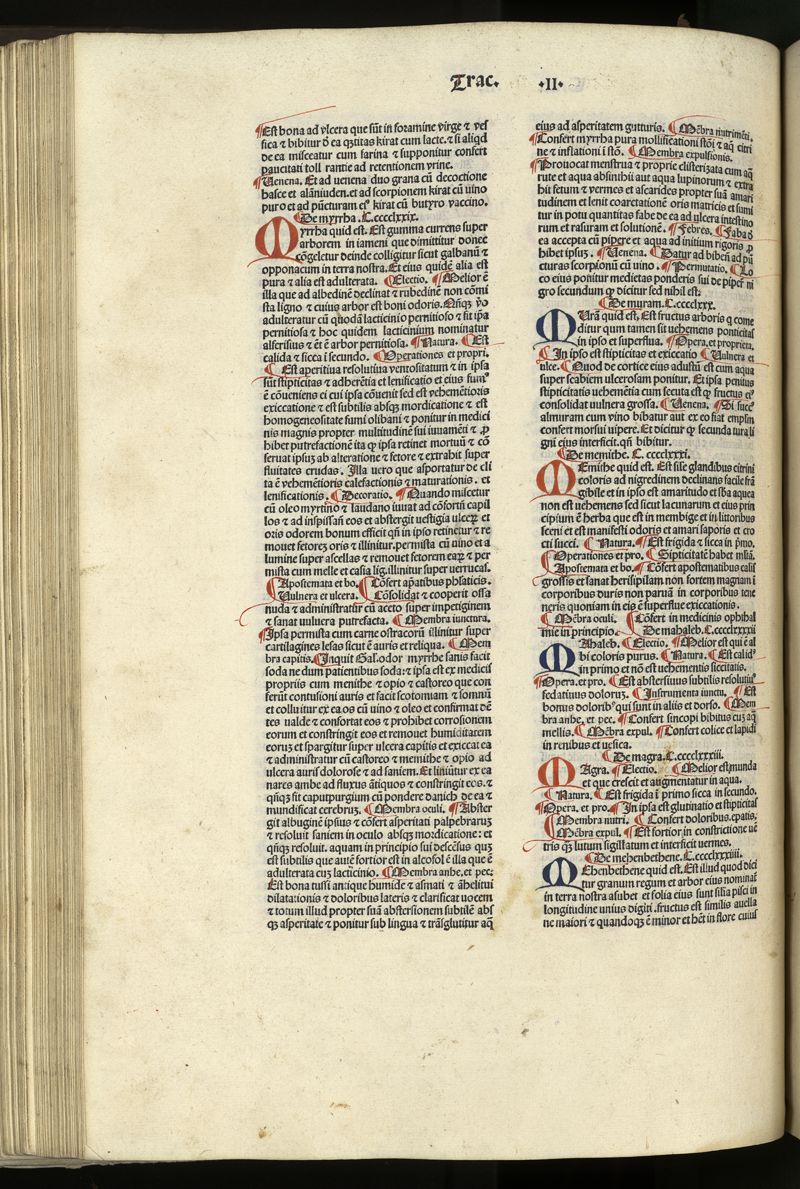 Trac. II
¶Est bona ad vlcera que sũt in foramine virge ⁊ vesſ
sica ⁊ bibitur ð ea q̃titas kirat cum lacte. ⁊ si aliqd
de ea misceatur cum farina ⁊ supponitur confert
paucitati toll rantie ad retentionem vrine.
¶Uenena. Et ad uenena duo grana cũ decoctione
hasce et alãniuden. et ad scorpionem kirat cũ uino
puro et ad pũcturam eiꝰ kirat cũ butyro vaccino.
¶De myrrha .C. cccclxxix.
Myrrha quid est. Est gumma currens super
arborem in iameni que dimittitur donec
cõgeletur deinde colligitur sicut galbanũ ⁊
opponacum in terra nostra. Et eius quidẽ alia est
pura ⁊ alia est adulterata. ¶Electio. ¶Melior ẽ
illa que ad albedinẽ declinat ⁊ rubedinẽ non cõmi
sta ligno ⁊ cuius arbor est boni odoris. Qñqꝫ ṽo
adulteratur cũ quodã lacticinio pernitioso ⁊ fit ip̃a
pernitiosa ⁊ hoc quidem lacticinium nominatur
alserisus ⁊ ẽt ẽ arbor pernitiosa. ¶Natura. ¶Est
calida ⁊ sicca ĩ secundo. ¶Operationes et propri.
¶Est aperitiua resolutiua ventositatum ⁊ in ipsa
sũt stipticitas ⁊ adherẽtia et lenificatio et eius fumꝰ
ẽ cõueniens ei cui ipsa cõuenit sed est vehemẽtioris
exiccatione ⁊ est subtilis absqꝫ mordicatione ⁊ est
homogeneositate fumi olibani ⁊ ponitur in medici
nis magnis propter multitudinẽ sui iuuamẽti ⁊ ꝓ
hibet putrefactionẽ ita ꝙ ipsa retinet mortuũ ⁊ cõ
seruat ipsuꝫ ab alteratione ⁊ fetore ⁊ extrahit super
fluitates crudas. Illa uero que asportatur de cli
ta ẽ vehemẽtioris calefactionis ⁊ maturationis. et
lenificationis. ¶Decoratio. ¶Quando miscetur
cũ oleo myrtino ⁊ laudano iuuat ad cõfortũ capil
los ⁊ ad inspissañ eos ⁊ abstergit uestigia ulceꝝ et
oris odorem bonum efficit qñ in ipso retinetur ⁊ re
mouet fetoreꝫ oris ⁊ illinitur. permista cũ uino et a
lumine super ascellas ⁊ remouet fetorem earꝝ ⁊ per
mista cum melle et casia lig. illinitur super uerrucas.
¶Apostemata et bo. ¶Cõfert ap̃atibus phlaticis.
¶Uulnera et ulcera. ¶Cõsolidat ⁊ cooperit ossa
nuda ⁊ administratur cũ aceto super impetiginem
⁊ sanat uuluera putrefacta. ¶Membra iunctura.
¶Ipsa permista cum carne ostracorũ illinitur super
cartilagines lesas sicut ẽ auris et reliqua. ¶Mem
bra capitis. ¶Inquit Gal. odor myrrhe sanis facit
soda ne dum patientibus soda: ⁊ ipsa est ex medicis
propriis cum menithe ⁊ opio ⁊ castoreo que con
ferũt contusioni auris et facit scotomiam ⁊ somnũ
et colluitur ex ea. os cũ uino ⁊ oleo et confirmat dẽ
tes ualde ⁊ confortat eos ⁊ prohibet corrosionem
eorum et constringit eos et remouet humiditatem
eoruꝫ et spargitur super ulcera capitis et exiccat ea
⁊ administratur cũ castoreo ⁊ memithe ⁊ opio ad
ulcera auris dolorose ⁊ ad saniem. Et liniũtur ex ea
nares ambe ad fluxus ãtiquos ⁊ constringit eos. ⁊
qñqꝫ fit caputpurgium cũ pondere danich de ea ⁊
mundificat cerebruꝫ. ¶Membra oculi. ¶Abster
git albuginẽ ipsius ⁊ cõfert asperitati palpebraruꝫ
⁊ resoluit saniem in oculo absqꝫ mordicatione: et
qñqꝫ resoluit. aquam in principio sui descẽsus quꝫ
est subtilis que autẽ fortior est in alcosol ẽ illa que ẽ
adulterata cuꝫ lacticinio. ¶Membra anhe. et pec:
Est bona tussi antique humide ⁊ asmati ⁊ ãhelitui
dilatationis ⁊ doloribus lateris ⁊ clarificat uocem
⁊ totum illud propter suã abstersionem subtilẽ abs
qꝫ asperitate ⁊ ponitur sub lingua ⁊ trãsglutitur aq̃
eius ad asperitatem gutturis. ¶Mẽbra nutrimẽti.
¶Confert myrrha pura mollificationi stõi ⁊ aq̃ citri
ne ⁊ inflationi ĩ stõ. ¶Membra expulsionis.
¶Prouocat menstrua ⁊ proprie clisterizata cum aq̃
rute et aqua absinthii aut aqua lupinorum ⁊ extra
hit fetum ⁊ vermes et ascarides propter suã amari
tudinem et lenit coarctationẽ oris matricis et sumi
tur in potu quantitas fabe de ea ad ulcera intestino
rum et rasuram et solutionẽ. ¶Febres. ¶Faba ð
ea accepta cũ pipere et aqua ad initium rigoris ꝓ
hibet ipsuꝫ. ¶Uenena. ¶Datur ad bibeñ ad pũ
cturas scorpionũ cũ uino. ¶Permutatio. ¶Lo
co eius ponitur medietas ponderis sui de piper ni
gro secundum ꝙ dicitur sed nihil est:
¶De muram. C. cccclxxx.
MUrã quid est. Est fructus arboris q̃ come
ditur qum tamen sit uehemens ponticitas
in ipso et superflua. ¶Opera. et proprieta.
¶In ipso est stipticitas et exiccatio ¶Uulnera et
ulce. ¶Quod de cortice eius adustũ est cum aqua
super scabiem ulcerosam ponitur. Et ipsa penitus
stipticitatis uehemẽtia cum secuta est ꝙ fructus eiꝰ
consolidat vulnera grossa. ¶Uenena. ¶Si succꝰ
almuram cum vino bibatur aut ex eo fiat emplm
confert morsui uipere. Et dicitur ꝙ secunda tura li
gni eius interficit. qñ bibitur.
¶De memithe. C. cccclxxxi.
MEmithe quid est. Est sise glandibus citrini
coloris ad nigredinem declinans facile frã
gibile et in ipso est amaritudo et sb̃a aquea
non est uehemens sed sicut lacunarum et eius prin
cipium ẽ herba que est in membige et in littoribus
sceni et est manifesti odoris et amari saporis et cro
cei succi. ¶Natura. ¶Est frigida ⁊ sicca in p̃mo.
¶Operationes et pro. ¶Sipticitatẽ habet mĩnã.
¶Apostemata et bo. ¶Cõfert apostematibus calis̃
grossis et sanat herisipilam non fortem magnam ĩ
corporibus duris non paruã in corporibus tene
neris quoniam in eis ẽ superflue exiccationis.
¶Mẽbra oculi. ¶Cõfert in medicinis ophthal
mie in principio. ¶De mahaleb. C. cccclxxxii
MAhaleb. ¶Electio. ¶Melior est qui ẽ al
bi coloris purus. ¶Natura. ¶Est calidꝰ
in primo et nõ est uehementis siccitatis.
¶Opera. et pro. ¶Est abstersiuus subtilis resolutiuꝰ
sedatiuus doloruꝫ. ¶Instrumenta iunctu. ¶Est
bonus doloribꝰ qui sunt in aliis et dorso. ¶Mem
bra anhe. et pec. ¶Confert sincopi bibitus cuꝫ aq̃
mellis. ¶Mẽbra expul. ¶Confert colice et lapidi
in renibus et uesica.
¶De magra. C. cccclxxxiii.
MAgra. ¶Electio. ¶Melior est munda
et que crescit et augmentatur in aqua.
¶Natura. ¶Est frigida ĩ primo sicca in secundo.
¶Opera. et pro. ¶In ipsa est glutinatio et stipticitas
¶Membra nutri. ¶Confert doloribus. epatis.
¶Mẽbra expul. ¶Est fortior in constrictione uẽ
tris qꝫ lutum sigillatum et interficit uermes.
¶De mehenbethene. C. cccclxxxiiii.
MEhenbethene quid est. Est illud quod dici
tur granum regum et arbor eius nominat̃
in terra nostra asubet et folia eius sunt silia pisci in
longitudine unius digiti. fructus est similis auella
ne maiori ⁊ quandoqꝫ ẽ minor et hẽt in flore cuius